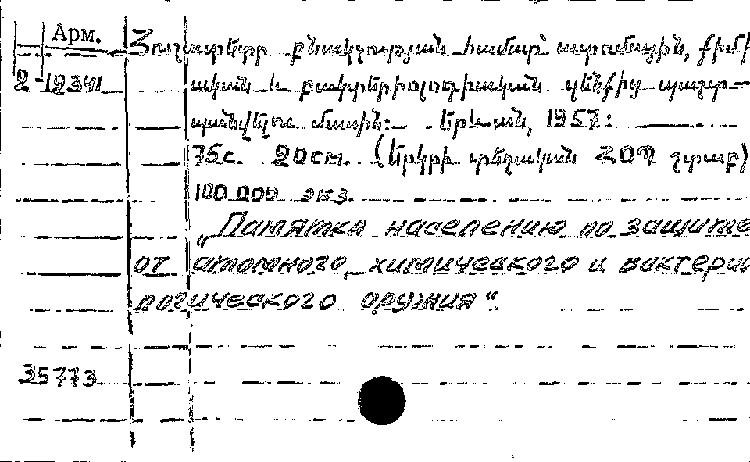 Арм.
Հուշաթերթ բնակչության համար ատոմային, քիմի
2-1934 ական և բակտերիոլոգիական զենքից պաշտ-
պանվելու մասին: Երևան, 1957:
75с. 20см. (Երկրի տեղական ՀՕՊ շտաբ)
100.000 экз.
„Памятка населению по защите
от атомного, химического и бактерио
логического оружия“.
35773